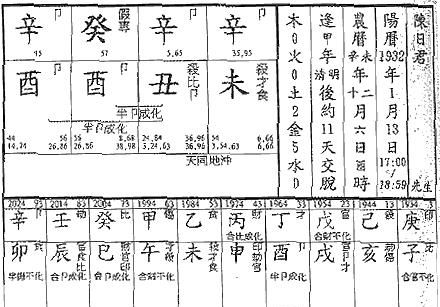 陳日君 先生
陽曆1932年1月13日17:00/18:59
農曆辛未年十二月六日酉時
逢甲年清明後約11天交脫
木0火0土2金5水0
辛 癸 辛 辛
45 57 5,65 35,95
酉 酉 丑 未
半卩成化
半卩成化
44 56 56 8,68 24,84 36,96 54 6,66
14,24 26,86 26,86 38,98 3,24,63 36,96 3,54,63 6,66
天同地沖
2024 93 2014 83 2004 73 1994 63 1984 53 1974 43 1964 33 1954 23 1944 13 1934 3
辛 壬 癸 甲 乙 丙 丁 戊 己 庚
合比成化 合財不化
卯 辰 巳 午 未 申 酉 戌 亥 子
半財不化 合卩成化 合卩成化 合財不化 合卩成化 合官不化